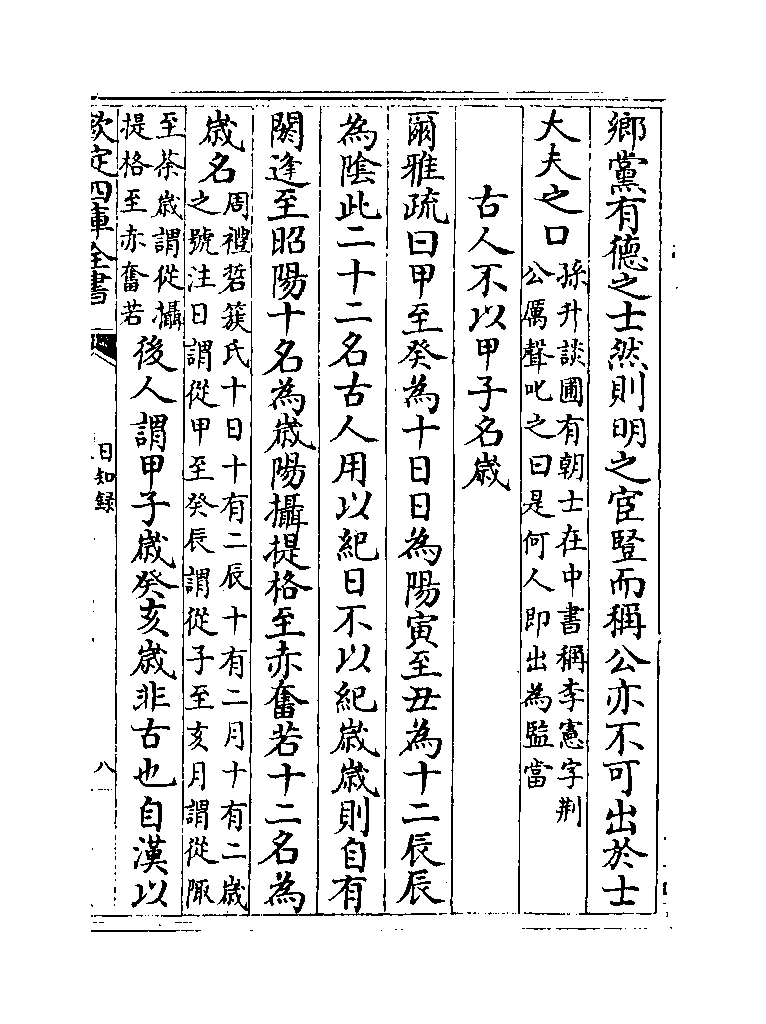 鄉黨有德之士然則明之宦豎而稱公亦不可出於士
大夫之口孫升談圃有朝士在中書稱李憲字荆
公厲聲叱之曰是何人即出為監當
古人不以甲子名歲
爾雅疏曰甲至癸為十日日為陽寅至丑為十二辰辰
為隂此二十二名古人用以紀日不以紀歲歲則自有
閼逢至昭陽十名為歲陽攝提格至赤奮若十二名為
歲名周禮硩蔟氏十日十有二辰十有二月十有二歲
之號注日謂從甲至癸辰謂從子至亥月謂從陬
至荼歲謂從攝
提格至赤奮若後人謂甲子歲癸亥歲非古也自漢以
欽定四庫全書
日知録
八